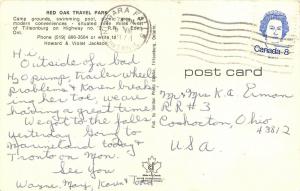 RED OAK TRAVEL PARK
Camp grounds, swimming pool,
modern conveniences - situated
of Tillsonburg on Highway no.
Ont.
Phone (519) 866-3504 or write to
Howard & Violet Jackson
Canada 8
post card
Hi,
Outside of a bad
H2O pump, trailer wheel
problems & Karen breaking
her toe, we're
having a great time
Went to the falls
yesterday. Going to
Marineland today &
Tronto on Mon.
See You
Wayne, May, Karen & Todd
Mr & Mrs K.A. Eimon
RR#3
Coshocton, Ohio
43812
USA